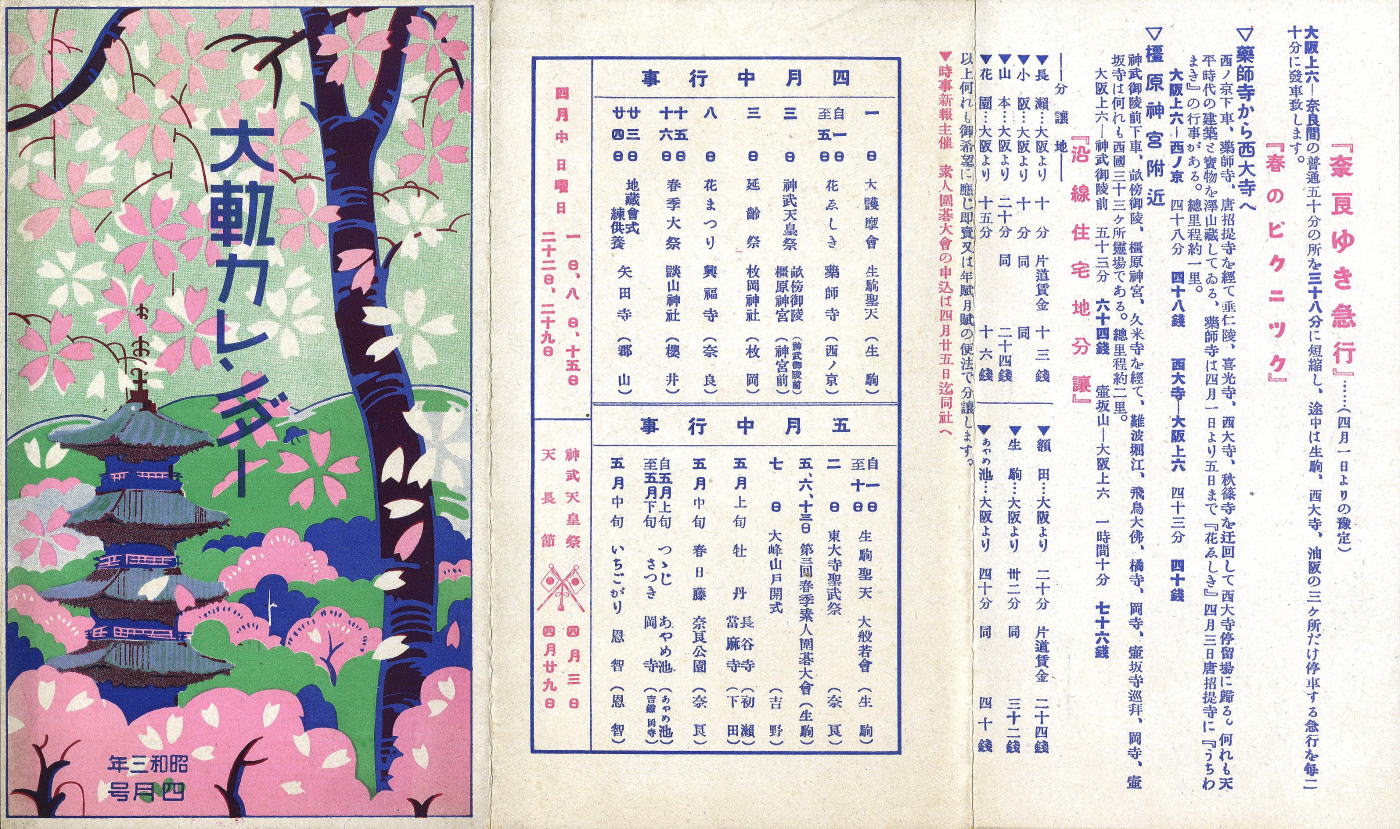 『奈良ゆき急行』……(四月一日よりの豫定)
大阪上六―奈良間の普通五十分の所を三十八分に短縮し、途中は生駒、西大寺、油阪の三ケ所だけ停車する急行を每二
十分に發車致します。
『春のピクニック』
▽藥師寺から西大寺へ
西ノ京下車、藥師寺、唐招提寺を經て垂仁陵、喜光寺、西大寺、秋篠寺を迂回して西大寺停留場に歸る。何れも天
平時代の建築と寶物を澤山藏してゐる、藥師寺は四月一日より五日まで『花ゑしき』四月三日唐招提寺に『うちわ
まき』の行事がある。總里程約一里。
大阪上六―西ノ京 四十八分 四十八錢 西大寺―大阪上六 四十三分 四十錢
▽橿原神宮附近
神武御陵前下車、畝傍御陵、橿原神宮、久米寺を經て、難波堀江、飛鳥大佛、橘寺、岡寺、壷坂寺巡拜、岡寺、壷
坂寺は何れも西國三十三ケ所靈場である。總里程約二里。
大阪上六―神武御陵前 五十三分 六十四錢 壷坂山―大阪上六 一時間十分 七十六錢
『沿線住宅地分讓』
―分讓地―
▼長瀬…大阪より 十分 片道賃金 十三錢
▼小阪…大阪より 十分 同 同
▼山本…大阪より 二十分 同 二十四錢
▼花園…大阪より 十五分 十六錢
▼額田…大阪より 二十分 片道賃金 二十四錢
▼生駒…大阪より 卅二分 同 三十二錢
▼あやめ池…大阪より 四十分 同 四十錢
以上何れも御希望に應じ即賣又は年賦月賦の便法で分讓します。
▼時事新報主催 素人圍碁大會の申込は四月廿五日迄同社へ
四月中行事
一日 大護摩會 生駒聖天(生駒)
自一日至五日 花ゑしき 藥師寺(西ノ京)
三日 神武天皇祭 畝傍御陵(神武御陵前) 橿原神宮(神宮前)
三日 延齡祭 枚岡神社(枚岡)
八日 花まつり 興福寺(奈良)
十五日十六日 春季大祭 談山神社(櫻井)
廿三日廿四日 地藏會式 練供養 矢田寺(郡山)
四月中日曜日
一日、八日、十五日
二十二日、二十九日
五月中行事
自一日至十日 生駒聖天 大般若會(生駒)
二日 東大寺聖武祭(奈良)
五、六、十三日 第三回春季素人圍碁大會(生駒)
七日 大峰山戸開式(吉野)
五月上旬 牡丹 長谷寺(初瀬) 當麻寺(下田)
五月中旬 春日藤 奈良公園(奈良)
自五月上旬 つゝじ あやめ池(あやめ池)
至五月下旬 さつき 岡寺(吉野岡寺)
五月中旬 いちごがり 恩智(恩智)
神武天皇祭 四月三日
天長節 四月廿九日
大軌カレンダー
昭和三年
四月号